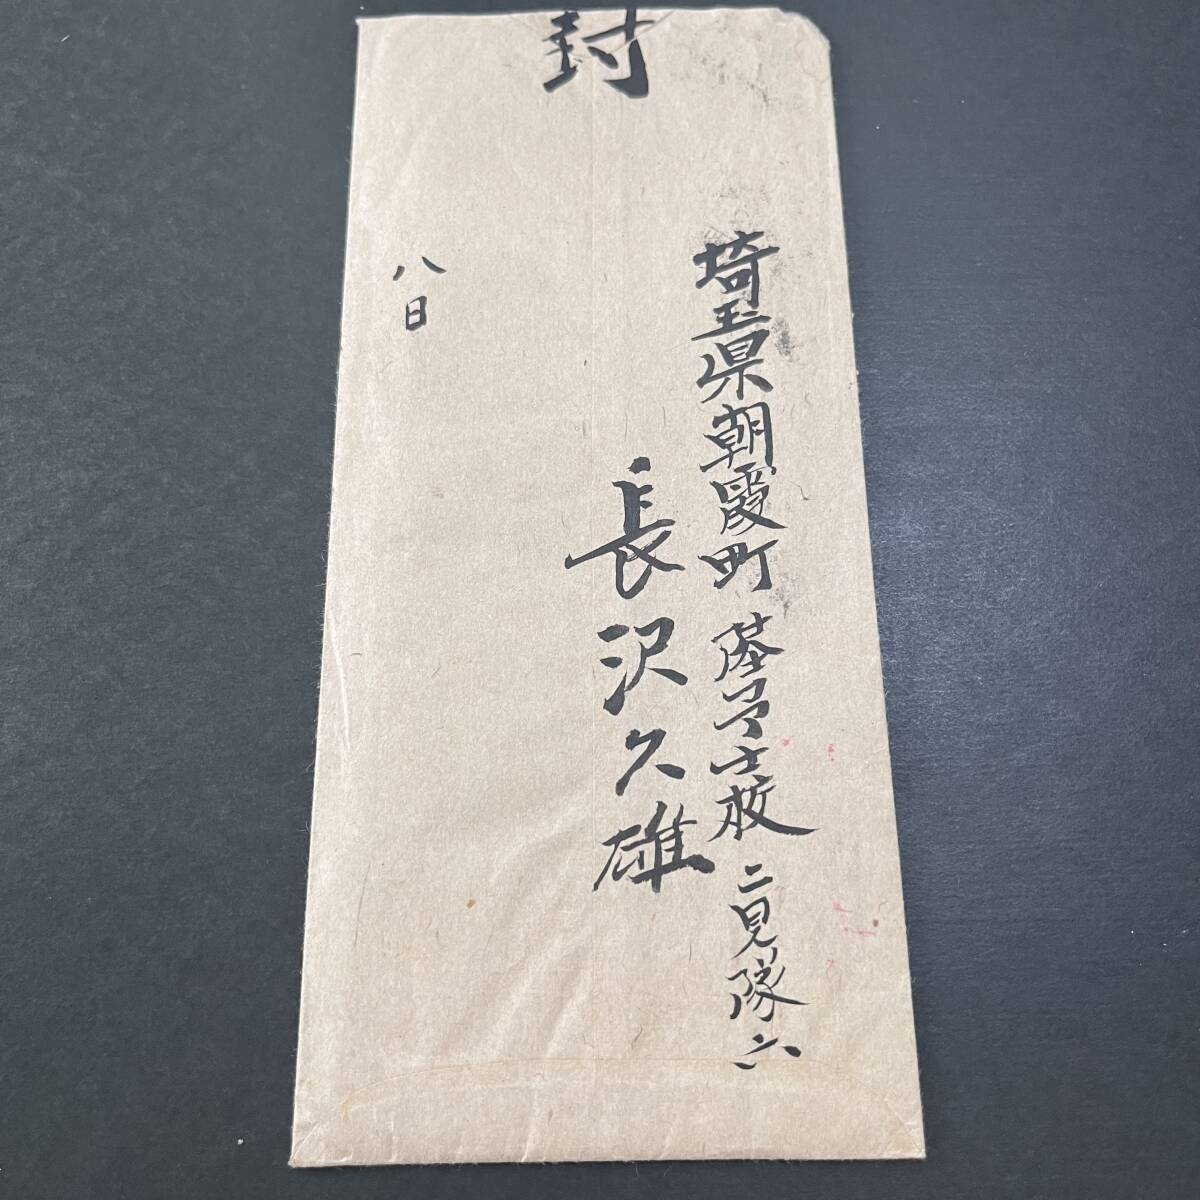 封
埼玉県朝霞町 陸予士校 二見隊六
長沢久雄
八日